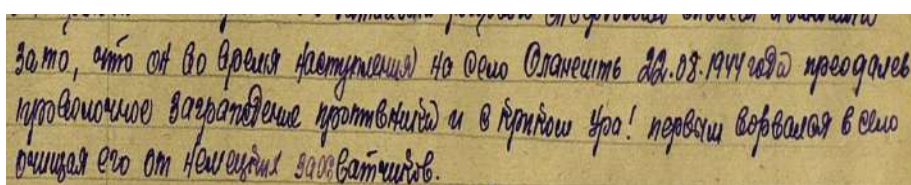 за то, что он во время наступления на село Оланешть 22.08.1944 года преодалев
проволочное заграждение противника и с криком Ура! первым ворвался в село
очищая его от немецких захватчиков.